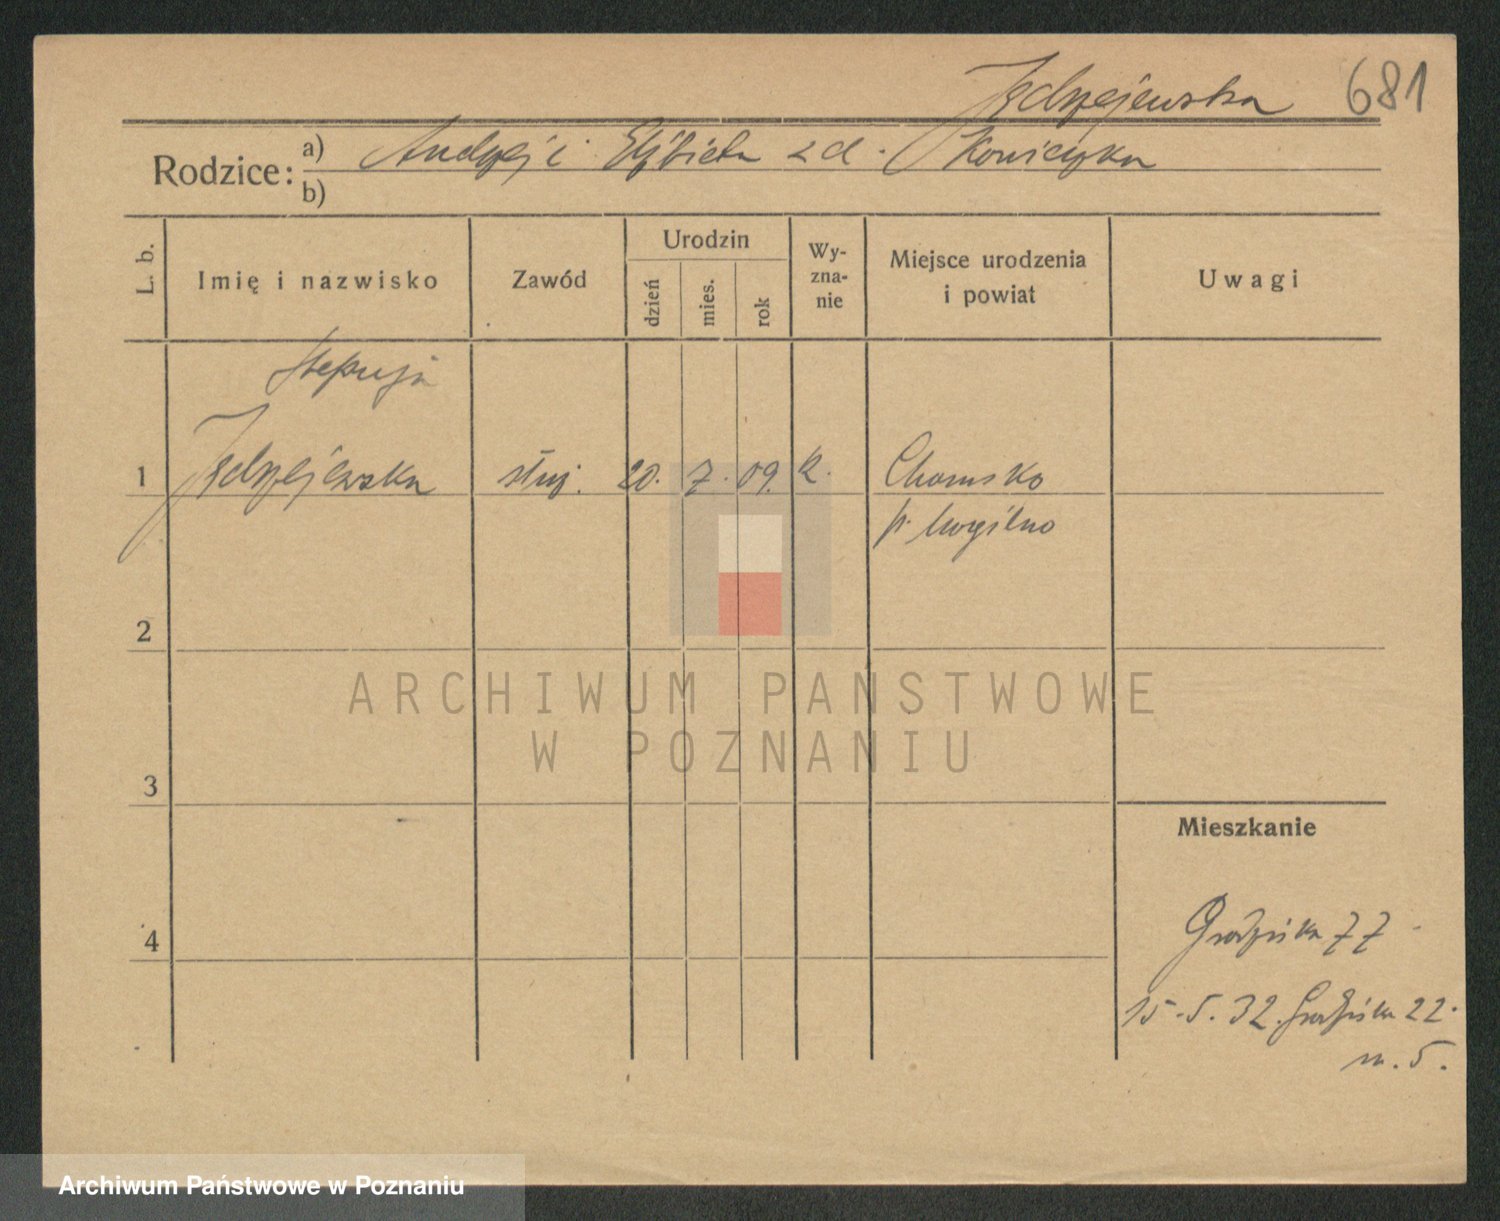 Jędrzejewska 681
Rodzice: a) Andrzej i Elżbieta z d.
b)
L. b.
Imię i nazwisko
Zawód
Urodzin
dzień
mies.
rok
Wy-
zna-
nie
Miejsce urodzenia
i powiat
Uwagi
1 Jędrzejewska służ. 20. 7. 09. k. Chomsko
p. Mogilno
2
3
4
Mieszkanie
77
15.5.32. 22.
m. 5.
ARCHIWUM PAŃSTWOWE
W POZNANIU
Archiwum Państwowe w Poznaniu